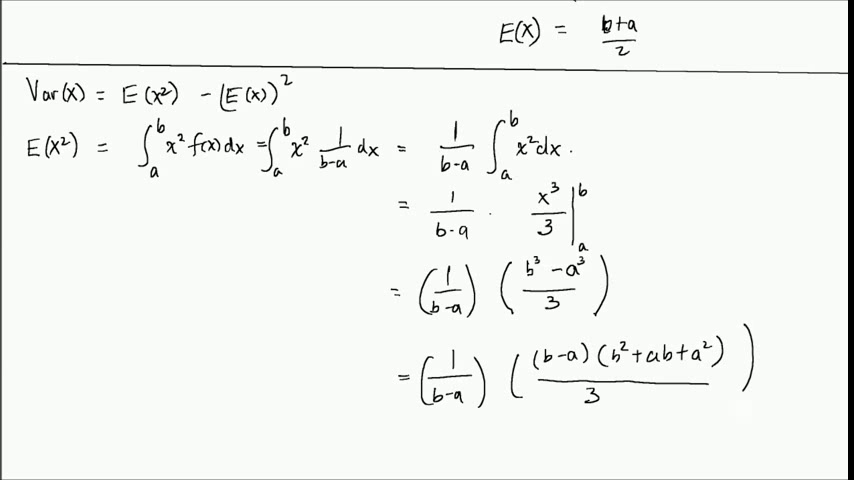 E(X) = b+a/2
Var(X) = E(X²) - (E(X))²
E(X²) = ∫ₐᵇ x² f(x) dx = ∫ₐᵇ x² 1/b-a dx = 1/b-a ∫ₐᵇ x² dx.
= 1/b-a · x³/3 |ₐᵇ
= (1/b-a) (b³-a³/3)
= (1/b-a) ((b-a)(b²+ab+a²)/3)